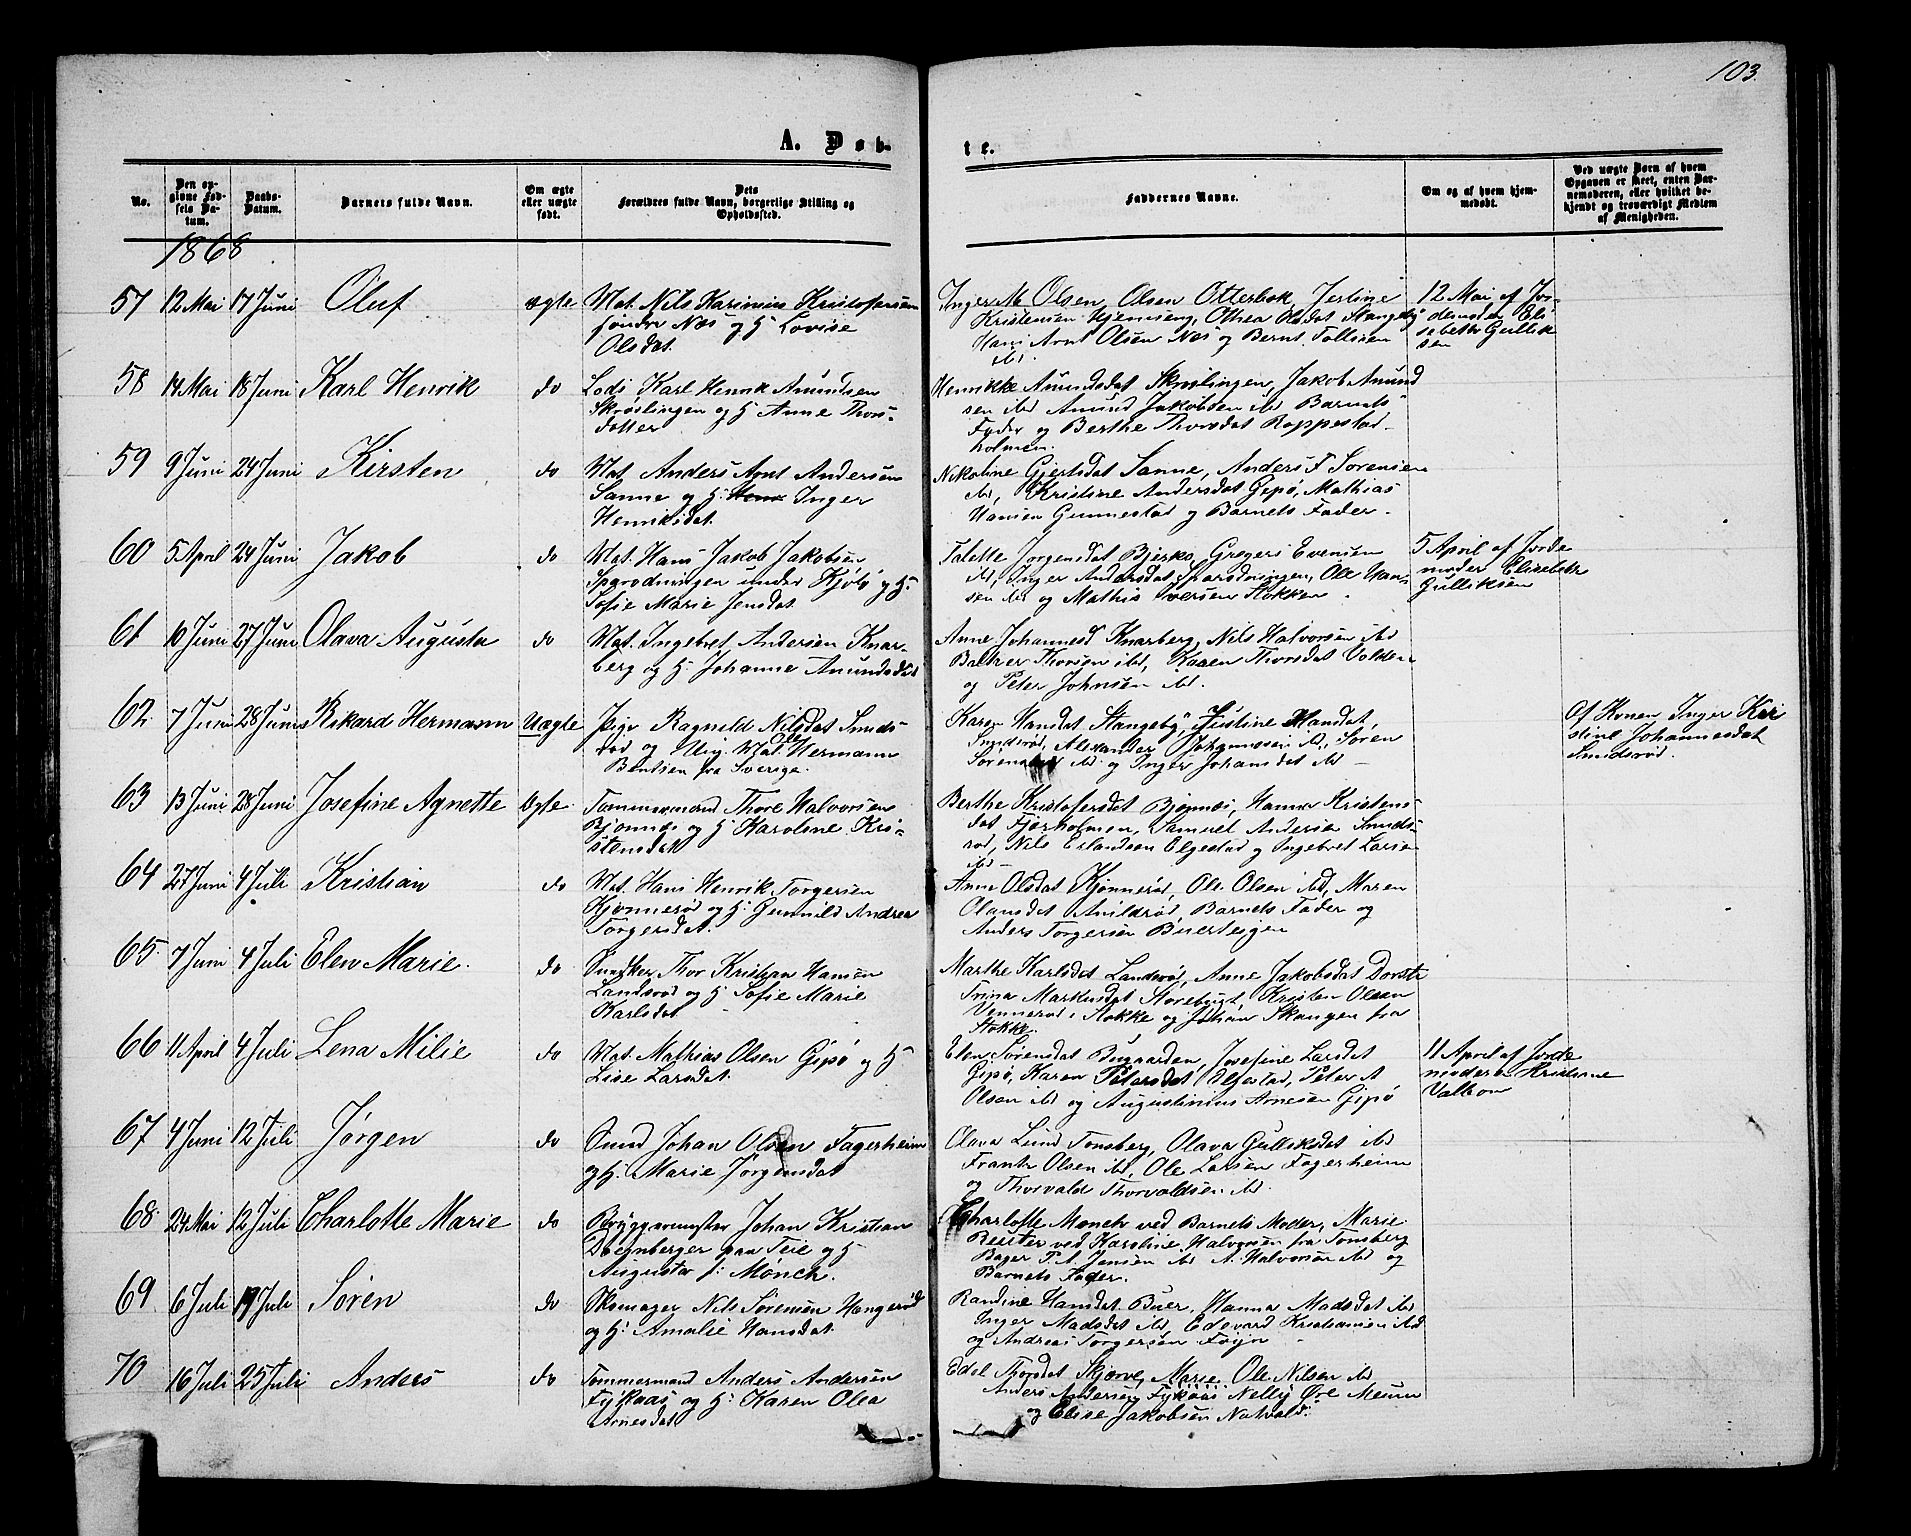 103.
A. Døb-
te.
No.
Den op-
givne Fød-
sels Da-
tum.
Daabs-
Datum.
Barnets fulde Navn.
Om ægte
eller uægte
født.
Dets
Forældres fulde Navn, borgerlige Stilling og
Opholdssted.
Faddernes Navne.
Om og af hvem hjem-
medøbt.
Ved uægte Børn af hvem
Opgaven er skeet, enten Bar-
nemoderen, eller hvilket be-
kjendt og troværdigt Medlem
af Menigheden.
1868
57 12 Mai 17 Juni Oluf ægte Mat. Nils Karinius Kristofersen
søndre Næs og H. Lovise
Olsdat.
Inger M Olsen, Olsen Otterbek, Jerline
Kristensen Hjemseng, Othea Olsdat Stangeby
Hans Arnt Olsen Næs og Bernt Tollisen
ibd.
12 Mai af Jor-
demoder Eli-
sebeth Gullik
sen
58 14 Mai 18 Juni Karl Henrik do Lods Karl Henrik Amundsen
Skrøslingen og H. Anne Thors-
datter
Henrikke Amundsdat Skrøslingen, Jakob Amund
sen ibd Amund Jakobsen ibd Barnets
Fader og Berthe Thorsdat Roppestad-
holmen.
59 9 Juni 24 Juni Kirsten do Mat. Anders Arnt Andersen
Sanne og H. Inger
Henriksdat.
Nikoline Gjertsdat Sanne, Anders F Sorensen
ibd, Kristine Andersdat Gipø, Mathias
Hansen Gunnestad og Barnets Fader.
60 5 April 24 Juni Jakob do Mat. Hans Jakob Jakobsen
Spærodningen under Kjøle og H.
Sofie Marie Jensdat.
Talette Jorgensdat Bjerko, Gregers Evensen
ibd, Inger Andersdat Sparodningen, Ole Han-
sen ibd og Mathis Iversen Stokken.
5 April af Jorde
moder Elisebeth
Gulliksen
61 10 Juni 27 Juni Olava Augusta do Mat. Ingebret Andersen Knar-
berg og H. Johanne Amundsdat
Anne Johannesd Knarberg, Nils Halvorsen ibd
Balzer Thorsen ibd, Karen Thorsdat Volden
og Peter Johnsen ibd.
62 7 Juni 28 Juni Rikard Hermann Uægte Pige Ragnild Nilsdat Smids-
rød og Ung. Mat. Ole Hermann
Bentsen fra Sverige.
Karen Hansdat Stangeby, Justine Hansdat,
Smidsrød, Alexander Johannesen ibd, Soren
Sørensen ibd og Inger Johansdat ibd
Of Konen Inger Kri
stine Johannesdat
Smidsrød.
63 13 Juni 28 Juni Josefine Agnette Ægte Tømmermand Thore Halvorsen
Bjonnes og H. Karoline Kri-
stensdat
Berthe Kristofersdat Bjonnes, Hanna Kristens-
dat Fjærholmen, Samuel Andersen Smids-
rød, Nils Erlandsen Elgestad og Ingebret Larsen
ibd
64 27 Juni 4 Juli Kristian do Mat. Hans Henrik Torgersen
Kjonnerød og H. Gunnild Andrea
Torgersdat.
Anne Olsdat Kjonnerød, Ole Olsen ibd, Maren
Olausdat Anildrød, Barnets Fader og
Anders Torgersen Buerteigen
65 7 Juni 4 Juli Elen Marie do Snedker Thor Kristian Hansen
Landsrød og H. Sofie Marie
Karlsdat
Marthe Karlsdat Landsrød, Anne Jakobsdat Dorste
Trina Markusdat Storebugt, Kristen Olsen
Vennerød i Stokke og Johan Skangen fra
Stokke.
66 11 April 4 Juli Lena Milie do Mat. Mathias Olsen Gipø og H.
Lise Larsdat.
Elen Sørensdat Bugaarden, Josefine Larsdat
Gipø, Karen Petersdat Elgestad, Peter A
Olsen ibd og Augustinius Arnesen Gipø
11 April af Jorde
moderen Kristiane
Valbom
67 4 Juni 12 Juli Jørgen do Smed Johan Olsen Fagerheim
og H. Marie Jørgensdat
Olava Lund Tonsberg, Olava Gulliksdat ibd
Frants Olsen ibd, Ole Larsen Fagerheim
og Thorvald Thorvaldsen ibd.
68 24 Mai 12 Juli Charlotte Marie do Bryggermester Johan Kristian
Doegnberger paa Teie og H.
Augusta f: Mönch.
Charlotte Monch ved Barnets Moder, Marie
Beuter ved Karoline Halvorsen fra Tonsberg
Bager P. A. Jansen ibd A. Halvorsen ibd og
Barnets Fader.
69 6 Juli 19 Juli Søren do Skomager Nils Sørensen Hangerød
og H. Amalie Hansdat.
Randine Hansdat Buer, Hanna Madsdat ibd
Inger Madsdat ibd, Edevard Kristiansen ibd
og Andreas Torgersen Føyn
70 16 Juli 25 Juli Anders do Tømmermand Anders Andersen
Fykaas og H. Karen Olea
Arnesdat
Edel Thorsdat Skjerve, Marie Ole Nilsen ibd
Anders Andersen Fykaas Nelly Øre Meum
og Elise Jakobsen Natvald.